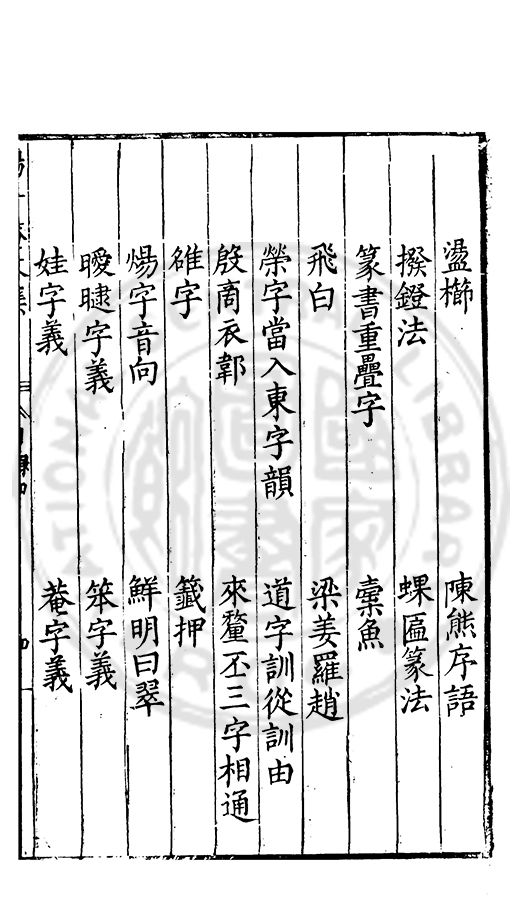 盪櫛　陳熊序語
撥鐙法　蜾匾篆法
篆書重疊字　櫜魚
飛白　梁姜羅趙
榮字當入東字韻　道字訓從訓由
殷商衣鄣　來釐丕三字相通
雄字　籤押
煬字音向　鮮明曰翠
曖曃字義　笨字義
娃字義　菴字義
LIBRARY